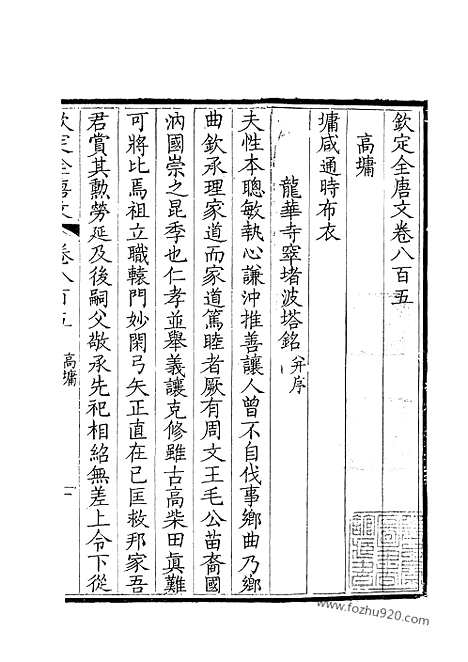 欽定全唐文卷八百五
高墉
墉咸通時布衣
龍華寺窣堵波塔銘并序
夫性本聰敏執心謙沖推善讓人曾不自伐事鄉曲乃鄉
曲欽承理家道而家道篤睦者厥有周文王毛公苗裔國
汭國崇之昆季也仁孝並舉義讓克修雖古高柴田真難
可將比焉祖立職轅門妙閑弓矢正直在已匡救邦家吾
君賞其勲勞延及後嗣父敬承先祀相紹無差上令下從
欽定全唐文 卷八百五 高墉 一
www.fozhu920.com